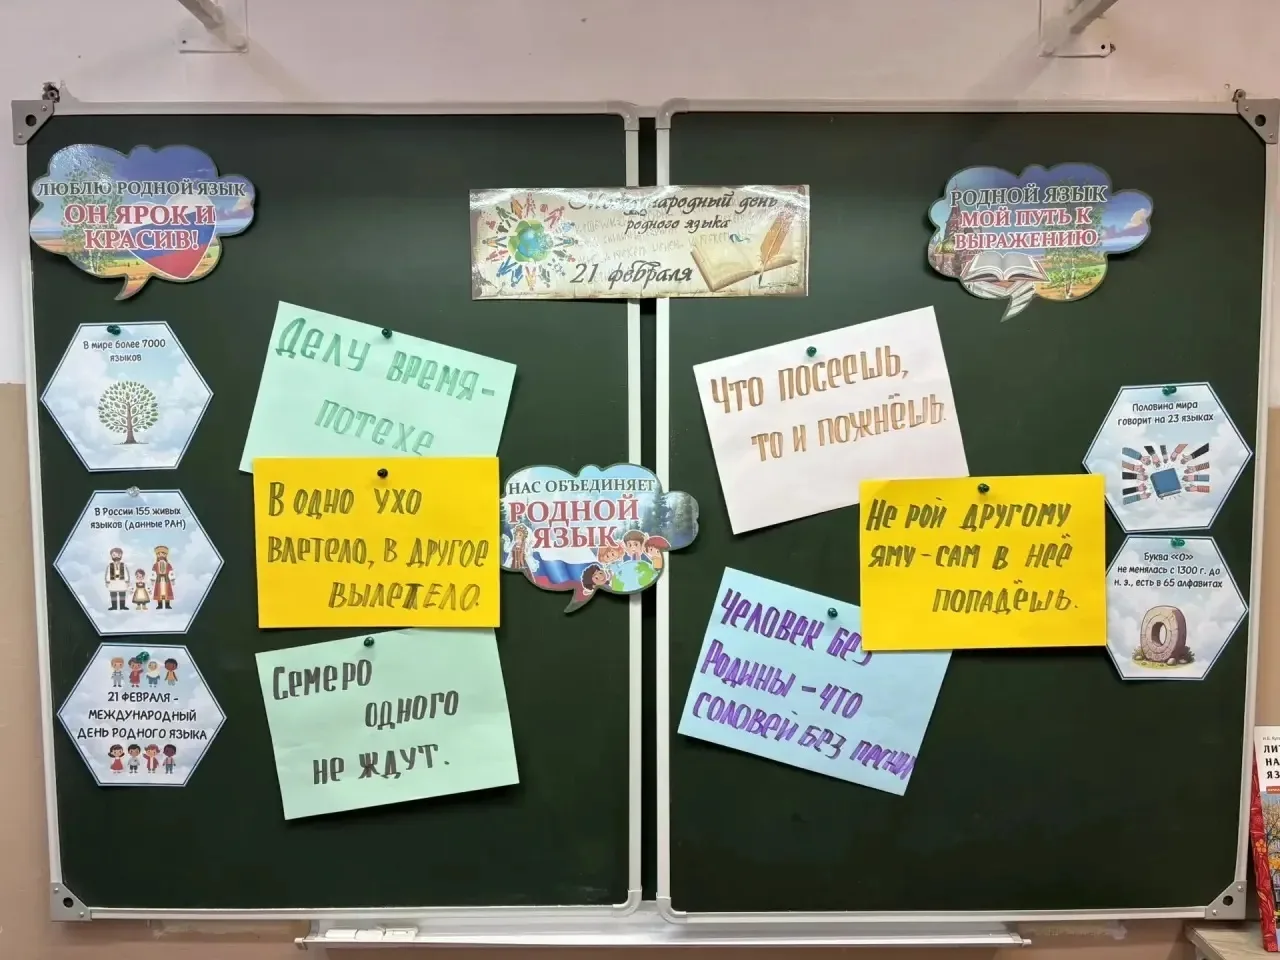 ЛЮБЛЮ РОДНОЙ ЯЗЫК
ОН ЯРОК И
КРАСИВ!
Международный день
родного языка
21 февраля
РОДНОЙ ЯЗЫК
МОЙ ПУТЬ К
ВЫРАЖЕНИЮ
В мире более 7000
языков
В России 155 живых
языков (данные РАН)
21 ФЕВРАЛЯ -
МЕЖДУНАРОДНЫЙ
ДЕНЬ РОДНОГО ЯЗЫКА
Делу время-
потехе
В одно ухо
влетело, в другое
вылетело.
Семеро
одного
не ждут.
НАС ОБЪЕДИНЯЕТ
РОДНОЙ
ЯЗЫК
Что посеешь,
то и пожнёшь.
Не рой другому
яму-сам в неё
попадёшь.
Человек без
Родины-что
соловей без песни
Половина мира
говорит на 23 языках
Буква «О»
не менялась с 1300 г. до
н. э., есть в 65 алфавитах